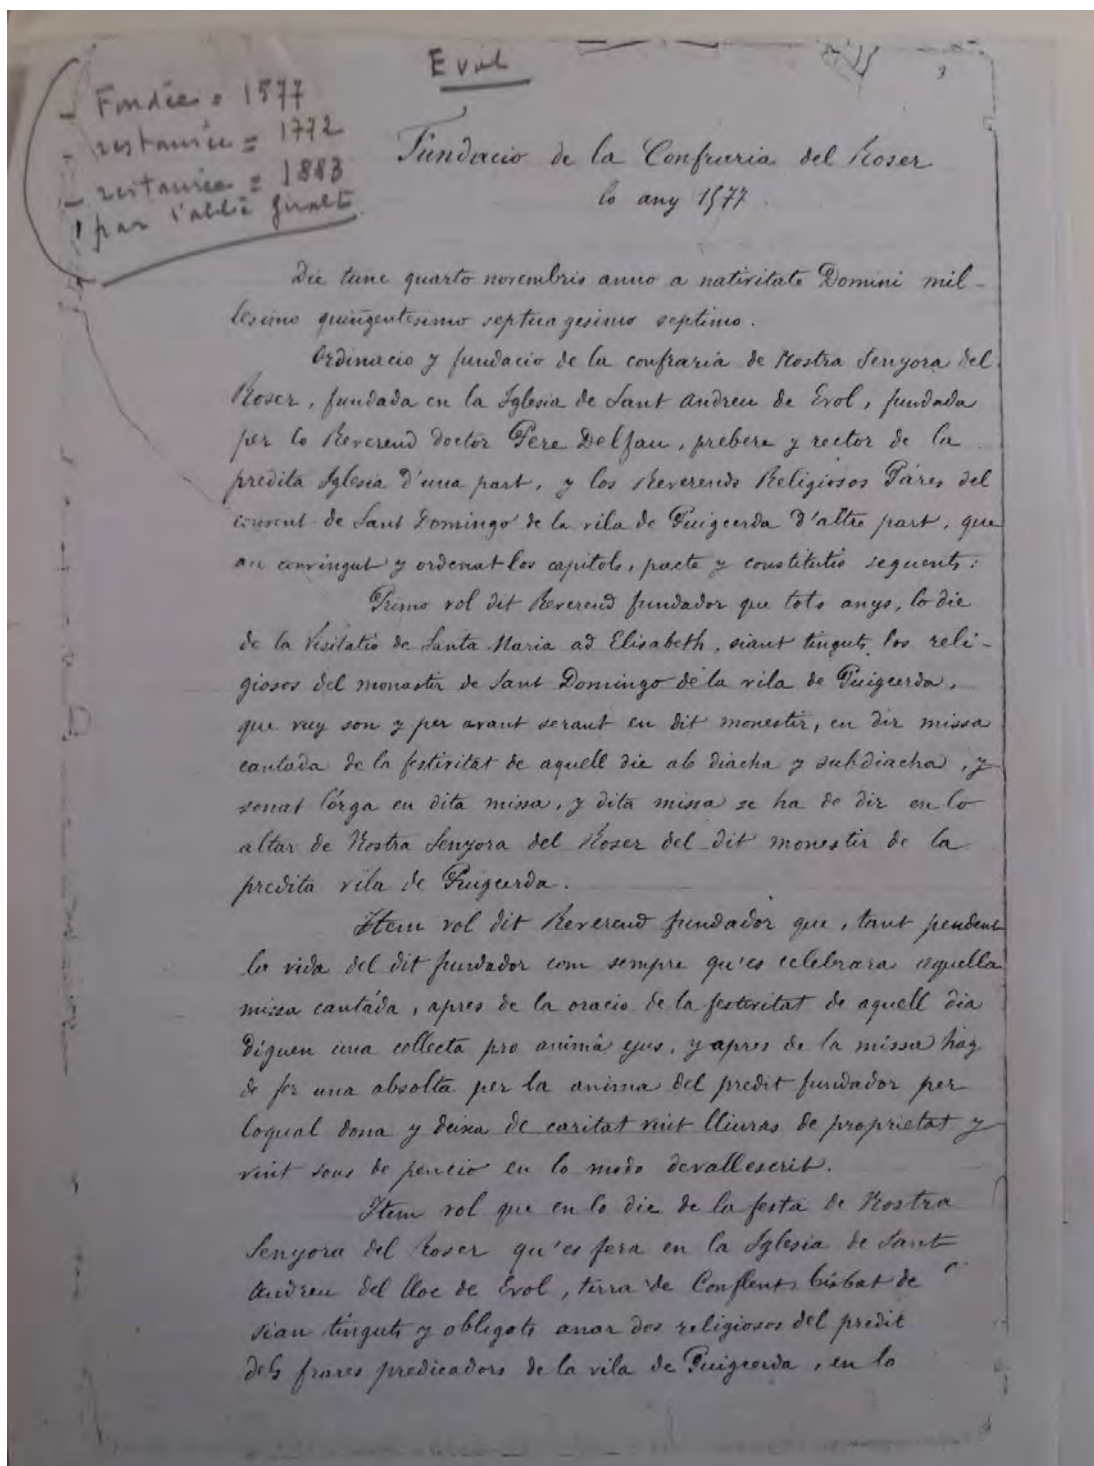 Evol
3
Fondée = 1577
restaurée = 1772
restaurée = 1883
par l'abbé Giralt
Fundacio de la Confraria del Roser
lo any 1577.
Die tune quarto novembris anno a nativitate Domini mil-
lesimo quingentesimo septuagesimo septimo.
Ordinacio y fundacio de la confraria de Nostra Senyora del
Roser, fundada en la Iglesia de Sant Andreu de Evol, fundada
per lo Reverend doctor Pere Delfau, prebere y rector de la
predita Iglesia d'una part, y los Reverends Religiosos Pares del
convent de Sant Domingo de la vila de Puigcerda d'altre part, que
an convingut y ordenat los capitols, pacte y constitutio seguents:
Primo vol dit Reverend fundador que tots anys, lo die
de la Visitatio de Santa Maria ad Elisabeth, siant tinguts los reli-
giosos del monastir de Sant Domingo de la vila de Puigcerda,
que vuy son y per avant serant en dit monestir, en dir missa
cantada de la festivitat de aquell die ab diacha y subdiacha, y
sonat l'orga en dita missa, y dita missa se ha de dir en lo
altar de Nostra Senyora del Roser del dit monestir de la
predita vila de Puigcerda.
Item vol dit Reverend fundador que, tant pendent
la vida del dit fundador com sempre qu'es celebrara aquella
missa cantada, apres de la oracio de la festivitat de aquell dia
diguen una collecta pro anima ejus, y apres de la missa hag
de fer una absolta per la anima del predit fundador per
loqual dona y deixa de caritat vint lliuras de proprietat y
vint sous de pencio en lo modo devallescrit.
Item vol que en lo die de la festa de Nostra
Senyora del Roser qu'es fera en la Iglesia de Sant
Andreu del lloc de Evol, terra de Conflent, bisbat de
sian tinguts y obligats anar dos religiosos del predit
dels frares predicadors de la vila de Puigcerda, en la